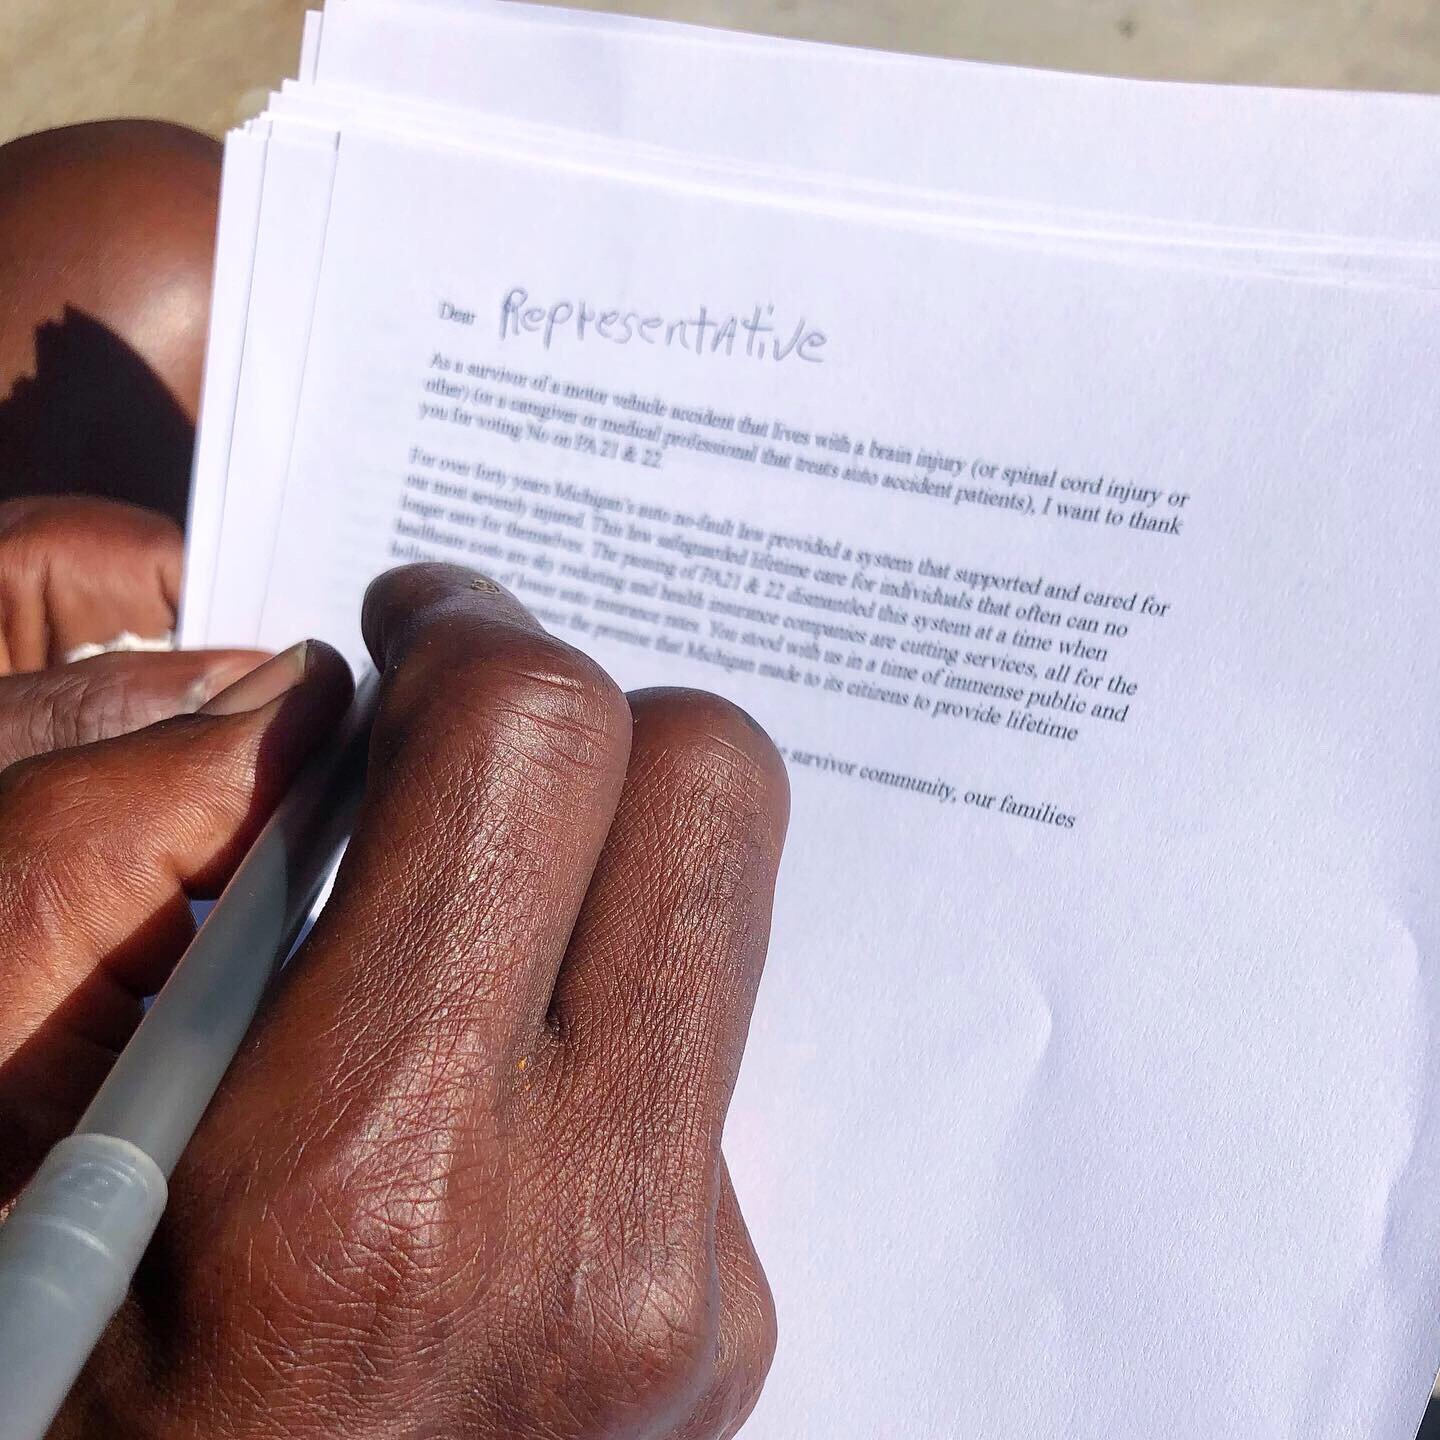 Dear RepresentAtive
As a survivor of a motor vehicle accident that lives with a brain injury (or spinal cord injury or
other) (or a caregiver or medical professional that treats auto accident patients), I want to thank
you for voting No on PA 21 & 22
For over forty years Michigan's auto no-fault law provided a system that supported and cared for
our most severely injured. This law safeguarded lifetime care for individuals that often can no
longer care for themselves. The passing of PA21 & 22 dismantled this system at a time when
healthcare costs are sky rocketing and health insurance companies are cutting services, all for the
hollow of lower auto insurance rates. You stood with us in a time of immense public and
the promise that Michigan made to its citizens to provide lifetime
survivor community, our families